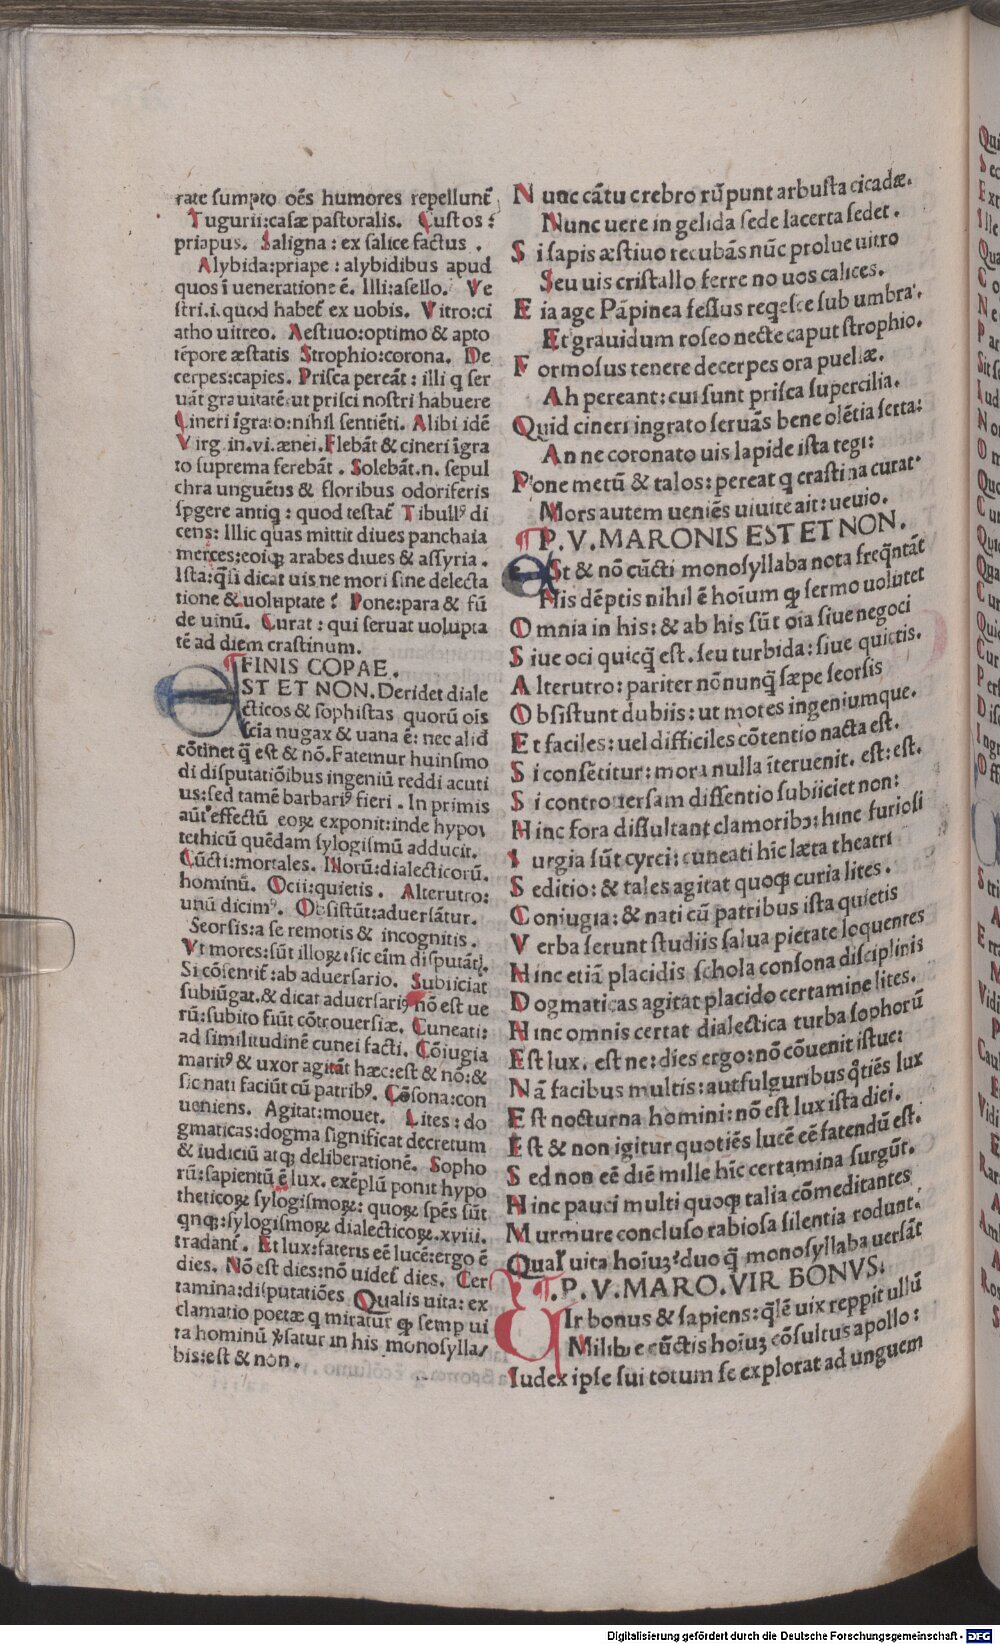 rate sumpto oēs humores repellunt᷑
Tugurii:casæ pastoralis. Custos:
priapus. Saligna: ex salice factus.
Alybida:priape: alybidibus apud
quos ī ueneratione ē. Illi:asello. Ve
stri.i.quod habet᷑ ex uobis. Vitro:ci
atho uitreo. Aestiuo:optimo & apto
tēpore æstatis Strophio:corona. De
cerpes:capies. Prisca pereāt: illi q ser
uāt grauitatē:ut prisci nostri habuere
Cineri īgrato:nihil sentiēti. Alibi idē
Virg.in.vi.ænei.Flebāt & cineri īgra
to suprema ferebāt. Solebāt.n. sepul
chra unguētis & floribus odoriferis
spgere antiq: quod testat᷑ Tibullꝰ di
cens: Illic quas mittit diues panchaia
merces:eoiqꝫ arabes diues & assyria.
Ista:q̄si dicat uis ne mori sine delecta
tione & uoluptate? Pone:para & fū
de uinū. Curat: qui seruat uolupta
tē ad diem crastinum.
FINIS COPAE.
EST ET NON. Deridet diale
cticos & sophistas quorū ois
scia nugax & uana ē: nec alid
cōtinet q̄ est & nō. Fatemur huinsmo
di disputatiōibus ingeniū reddi acuti
us:sed tamē barbariꝰ fieri. In primis
aūt effectū eoꝝ exponit:inde hypo
tethicū quēdam sylogismū adducit.
Cūcti:mortales. Horū:dialecticorū.
hominū. Ocii:quietis. Alterutro:
unū dicimꝰ. Obsistūt:aduersātur.
Seorsis:a se remotis & incognitis.
Vt mores:sūt illoꝝ:sic eīm disputāt᷑.
Si cōsentit᷑:ab aduersario. Subiiciat
subiūgat.& dicat aduersariꝰ nō est ue
rū:subito fiūt cōtrouersiæ. Cuneati:
ad similitudinē cunei facti. Cōiugia
maritꝰ & uxor agitāt hæc:est & nō:&
sic nati faciūt cū patribꝰ. Cōsona:con
ueniens. Agitat:mouet. Lites: do
gmaticas:dogma significat decretum
& iudiciū atqꝫ deliberationē. Sopho
rū:sapientū ē lux. exēplū ponit hypo
theticoꝝ sylogismoꝝ: quoꝝ spēs sūt
qnqꝫ:sylogismoꝝ dialecticoꝝ.xviii.
tradant᷑. Et lux:fateris eē lucē:ergo ē
dies. Nō est dies:nō uidet᷑ dies. Cer
tamina:disputatiōes Qualis uita: ex
clamatio poetæ q miratur qꝫ semp ui
ta hominū ꝟsatur in his monosylla/
bis:est & non.
Nunc cātu crebro rūpunt arbusta cicadæ.
Nunc uere in gelida sede lacerta sedet.
Si sapis æstiuo recubās nūc prolue uitro
Seu uis cristallo ferre no uos calices.
Eia age Pāpinea fessus reqesce sub umbra.
Et grauidum roseo necte caput strophio.
Formosus tenere decerpes ora puellæ.
Ah pereant: cui sunt prisca supercilia.
Quid cineri ingrato seruās bene olētia serta:
An ne coronato uis lapide ista tegi:
Pone metū & talos: pereat q crastina curat.
Mors autem ueniēs uiuite ait: ueuio.
P.V. MARONIS EST ET NON.
Est & nō cūcti monosyllaba nota freq̄ntāt
His dēptis nihil ē hoium qꝫ sermo uolutet
Omnia in his: & ab his sūt oīa siue negoci
Siue oci quicq̄ est. seu turbida: siue quietis.
Alterutro: pariter nō nunq̄ sæpe seorsis
Obsistunt dubiis: ut mores ingeniumque.
Et faciles: uel difficiles cōtentio nacta est.
Si consētitur: mora nulla īteruenit. est: est.
Si controuersam dissentio subiiciet non:
Hinc fora dissultant clamoribꝫ: hinc furiosi
Iurgia sūt cyrci: cuneati hīc læta theatri
Seditio: & tales agitat quoqꝫ curia lites.
Coniugia: & nati cū patribus ista quietis
Verba serunt studiis salua pietate loquentes
Hinc etiā placidis schola consona disciplinis
Dogmaticas agitat placido certamine lites.
Hinc omnis certat dialectica turba sophorū
Est lux. est ne: dies ergo: nō cōuenit istuc:
Nā facibus multis: aut fulguribus q̊tiēs lux
Est nocturna homini: nō est lux ista diei.
Est & non igitur quotiēs lucē eē fatendū est.
Sed non eē diē mille hīc certamina surgūt.
Hinc pauci multi quoqꝫ talia cōmeditantes
Murmure concluso rabiosa silentia rodunt.
Qualr̄ uita hoiuꝫ? duo q̄ monosyllaba uersāt
P.V.MARO.VIR BONVS.
VIr bonus & sapiens: q̄lē uix reppit ullū
Milibus e cūctis hoiuꝫ cōsultus apollo:
Iudex ipse sui totum se explorat ad unguem
Digitalisierung gefördert durch die Deutsche Forschungsgemeinschaft - DFG